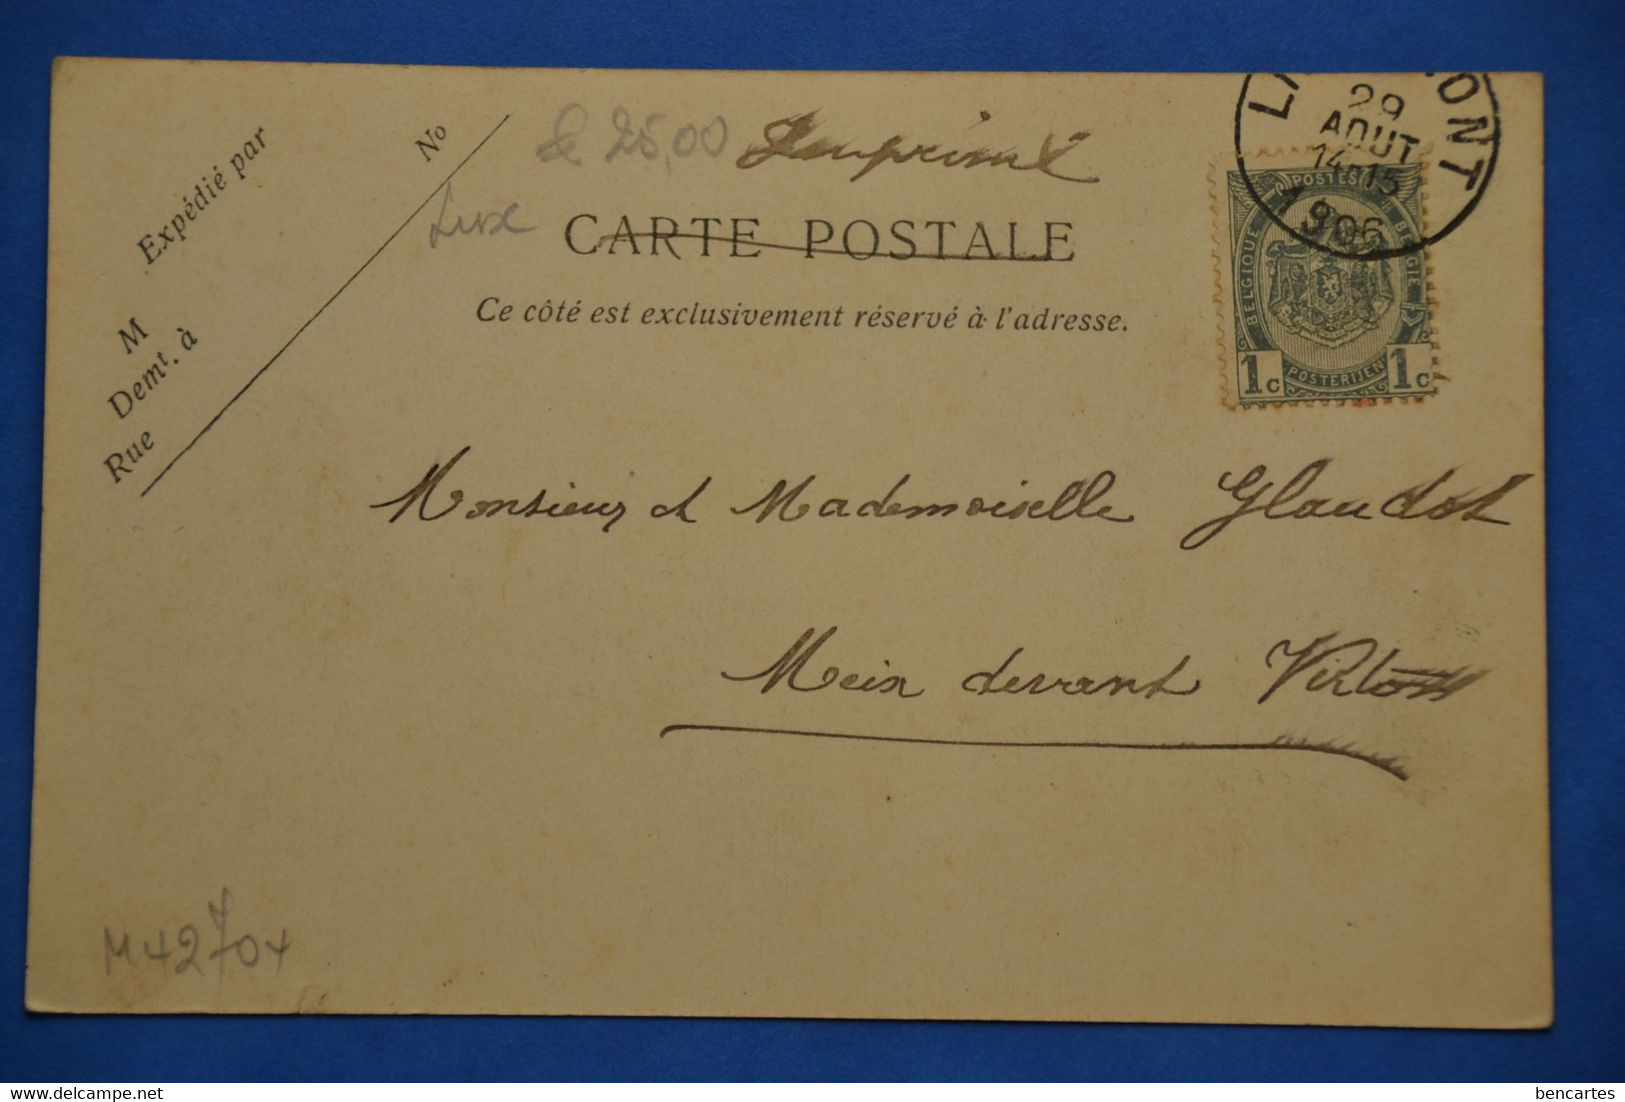 Expédié par
No
M
Demt. à
Rue
25,00 Imprimé
Luxe
CARTE POSTALE
Ce côté est exclusivement réservé à l'adresse.
29
AOUT
14-15
1906
POSTES
BELGIQUE
BELGIE
1c POSTERIJEN 1c
Monsieur et Mademoiselle Glaudot
Meix devant Virton
M42704
delcampe.net
bencartes